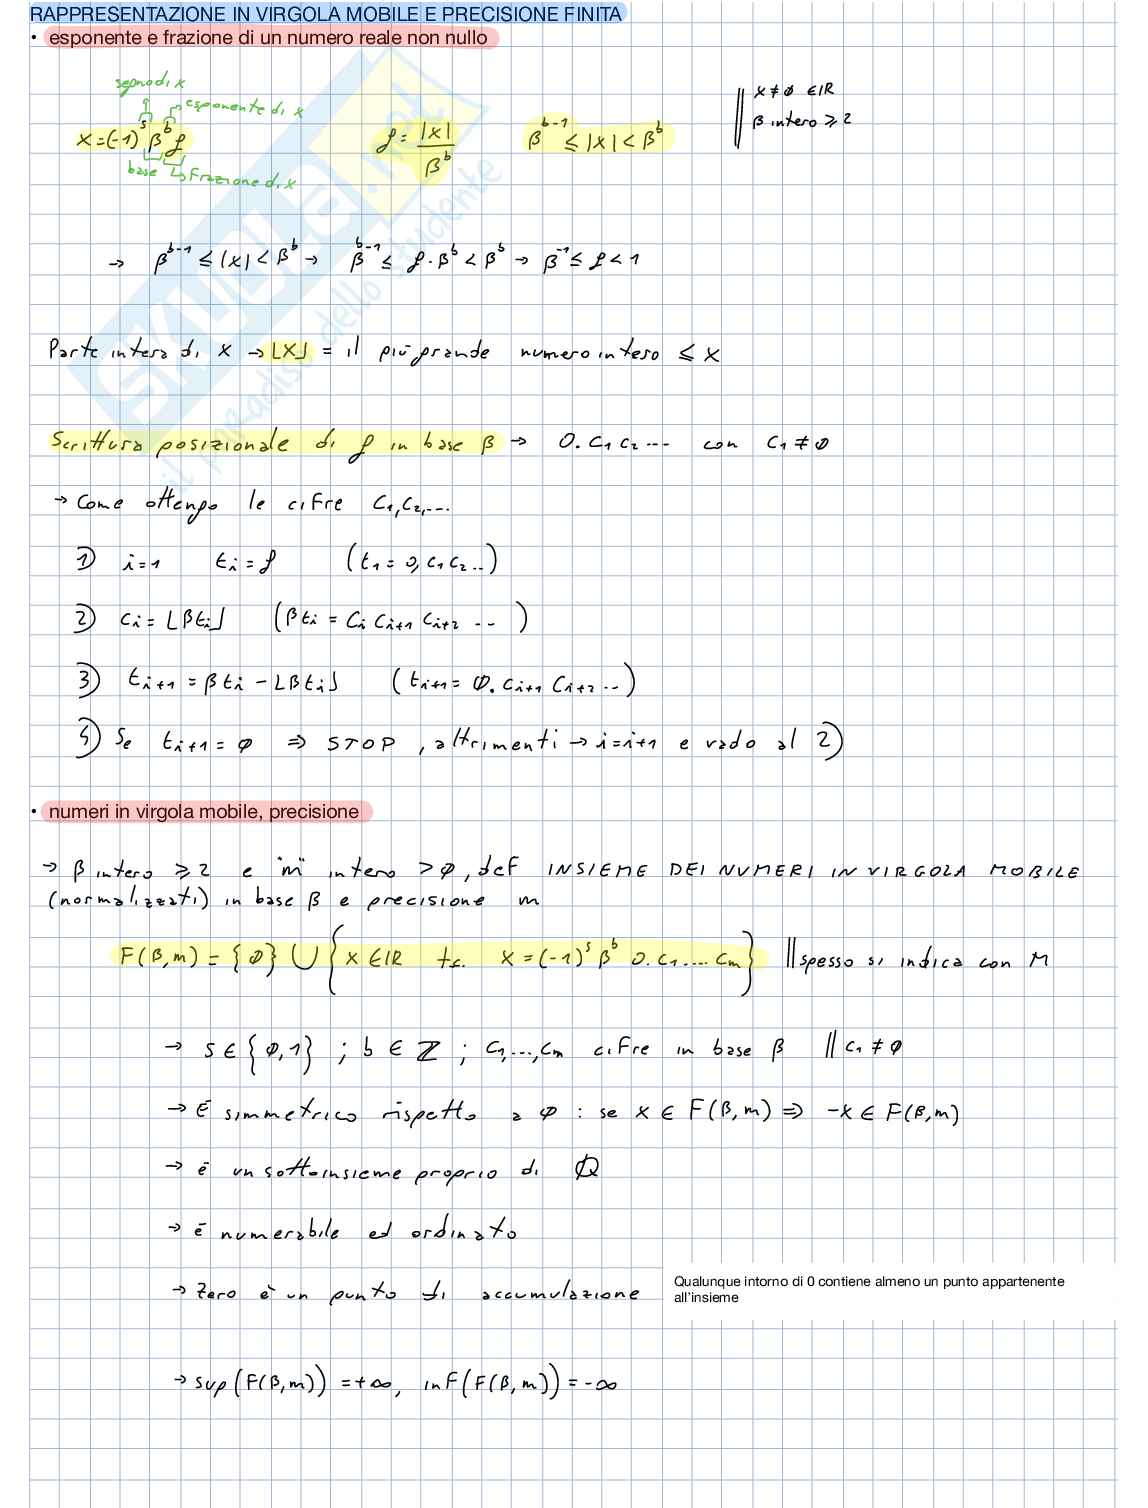 RAPPRESENTAZIONE IN VIRGOLA MOBILE E PRECISIONE FINITA
• esponente e frazione di un numero reale non nullo
segno di x
esponente di x
x = (-1)^s β^b f
base ↳ Frazione di x
f = |x| / β^b
β^(b-1) ≤ |x| < β^b
x ≠ 0 ∈ ℝ
β intero ≥ 2
→ β^(b-1) ≤ |x| < β^b → β^(b-1) ≤ f · β^b < β^b → β^(-1) ≤ f < 1
Parte intera di x → ⌊x⌋ = il più grande numero intero ≤ x
Scrittura posizionale di f in base β → 0. c₁ c₂ ... con c₁ ≠ 0
→ Come ottengo le cifre c₁, c₂, ...
1) i=1 tᵢ = f (t₁ = 0, c₁ c₂ ..)
2) cᵢ = ⌊βtᵢ⌋ (βtᵢ = cᵢ cᵢ₊₁ cᵢ₊₂ ...)
3) tᵢ₊₁ = βtᵢ - ⌊βtᵢ⌋ (tᵢ₊₁ = 0. cᵢ₊₁ cᵢ₊₂ ...)
4) Se tᵢ₊₁ = 0 ⇒ STOP, altrimenti → i=i+1 e vado al 2)
• numeri in virgola mobile, precisione
→ β intero ≥ 2 e "m" intero > 0, def INSIEME DEI NUMERI IN VIRGOLA MOBILE
(normalizzati) in base β e precisione m
F(β,m) = {0} ∪ {x ∈ ℝ t.c. x = (-1)^s β^b 0. c₁ .... cₘ} || spesso si indica con M
→ s ∈ {0,1} ; b ∈ ℤ ; c₁,...,cₘ cifre in base β || c₁ ≠ 0
→ È simmetrico rispetto a 0 : se x ∈ F(β,m) ⇒ -x ∈ F(β,m)
→ è un sottoinsieme proprio di ℚ
→ è numerabile ed ordinato
→ Zero è un punto di accumulazione
Qualunque intorno di 0 contiene almeno un punto appartenente
all'insieme
→ sup(F(β,m)) = +∞, inf(F(β,m)) = -∞
SKUOLA.net
il paradiso dello studente